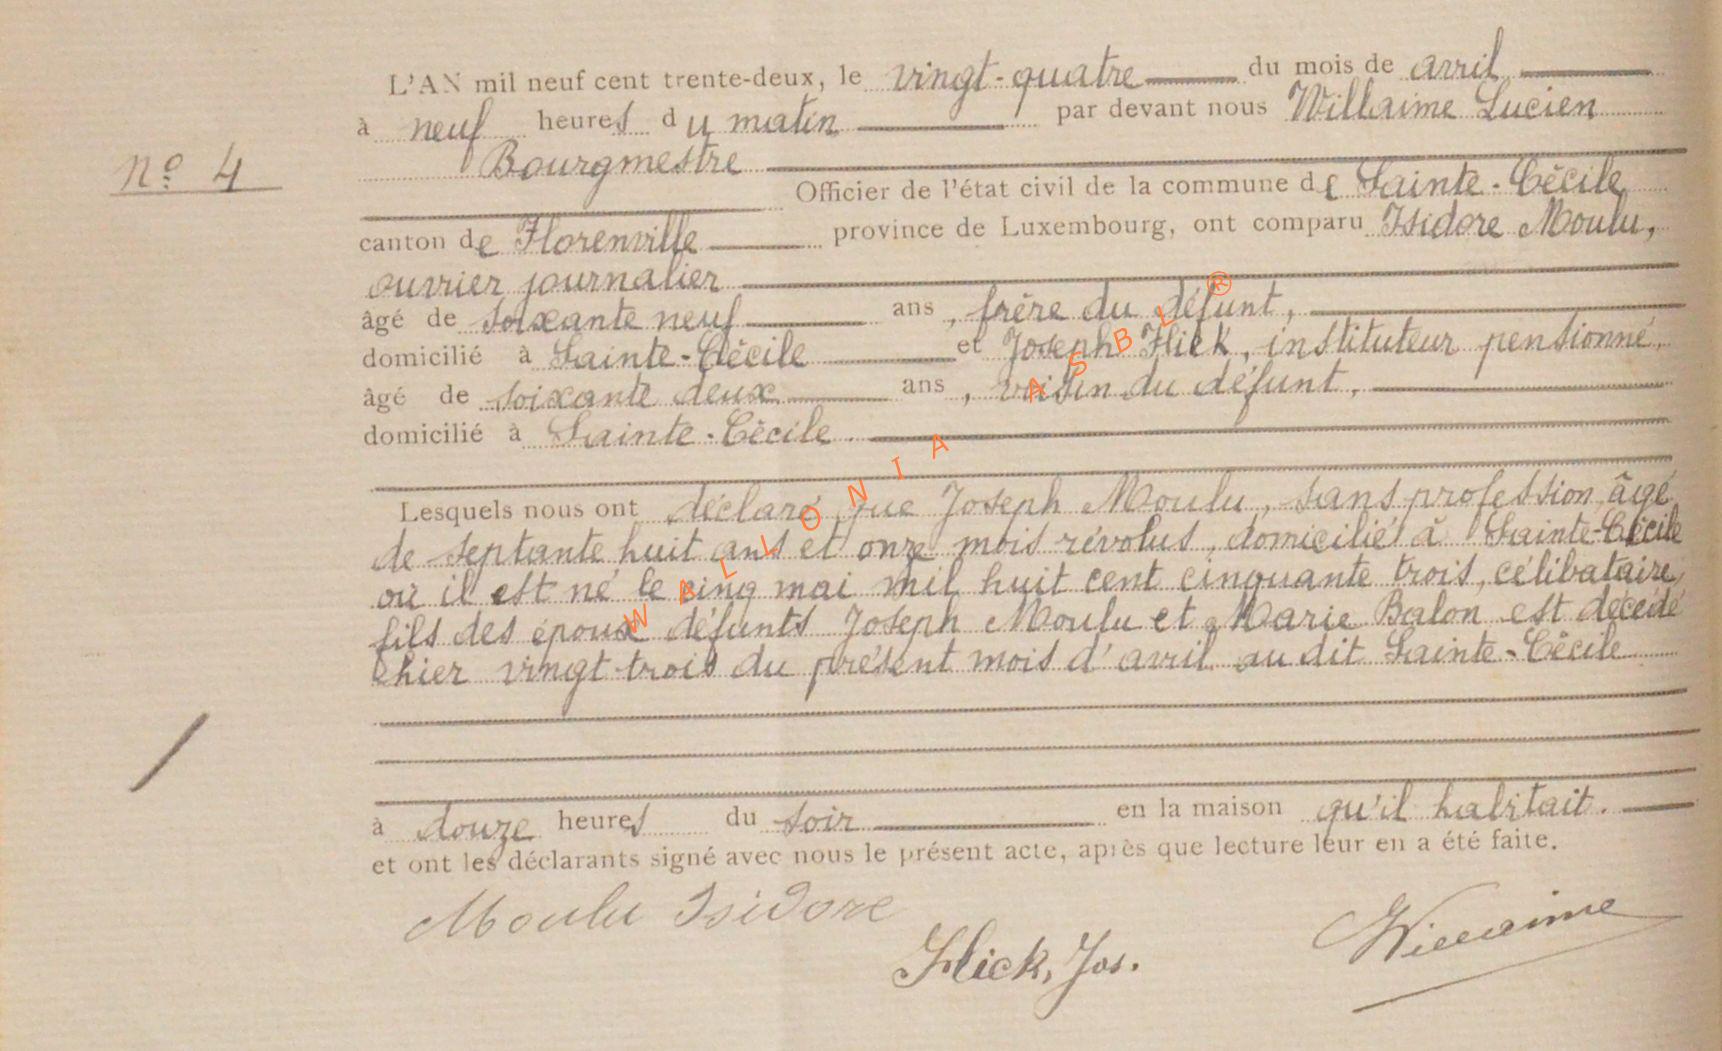 L'AN mil neuf cent trente-deux, le vingt-quatre du mois de avril
à neuf heures du matin par devant nous Willaime Lucien
Nº 4
Bourgmestre
Officier de l'état civil de la commune de Sainte-Cécile,
canton de Florenville province de Luxembourg, ont comparu Isidore Moulu,
ouvrier journalier
âgé de soixante neuf ans, frère du défunt,
domicilié à Sainte-Cécile et Joseph Flick, instituteur pensionné,
âgé de soixante deux ans, voisin du défunt,
domicilié à Sainte-Cécile.
Lesquels nous ont déclaré que Joseph Moulu, sans profession, âgé
de septante huit ans et onze mois révolus, domicilié à Sainte-Cécile
où il est né le cinq mai mil huit cent cinquante trois, célibataire,
fils des époux défunts Joseph Moulu et Marie Balon est décédé
hier vingt-trois du présent mois d'avril au dit Sainte-Cécile
à douze heures du soir en la maison qu'il habitait.
et ont les déclarants signé avec nous le présent acte, après que lecture leur en a été faite.
Moulu Isidore
Flick, Jos.
Willaime
WALLONIA ASBL ®